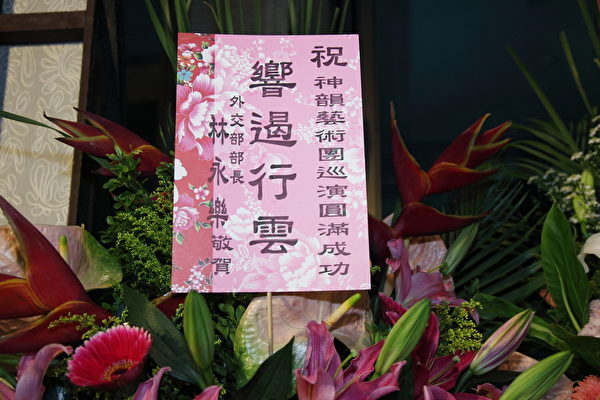 祝
神韻藝術團巡演圓滿成功
響遏行雲
外交部部長
林永樂敬賀